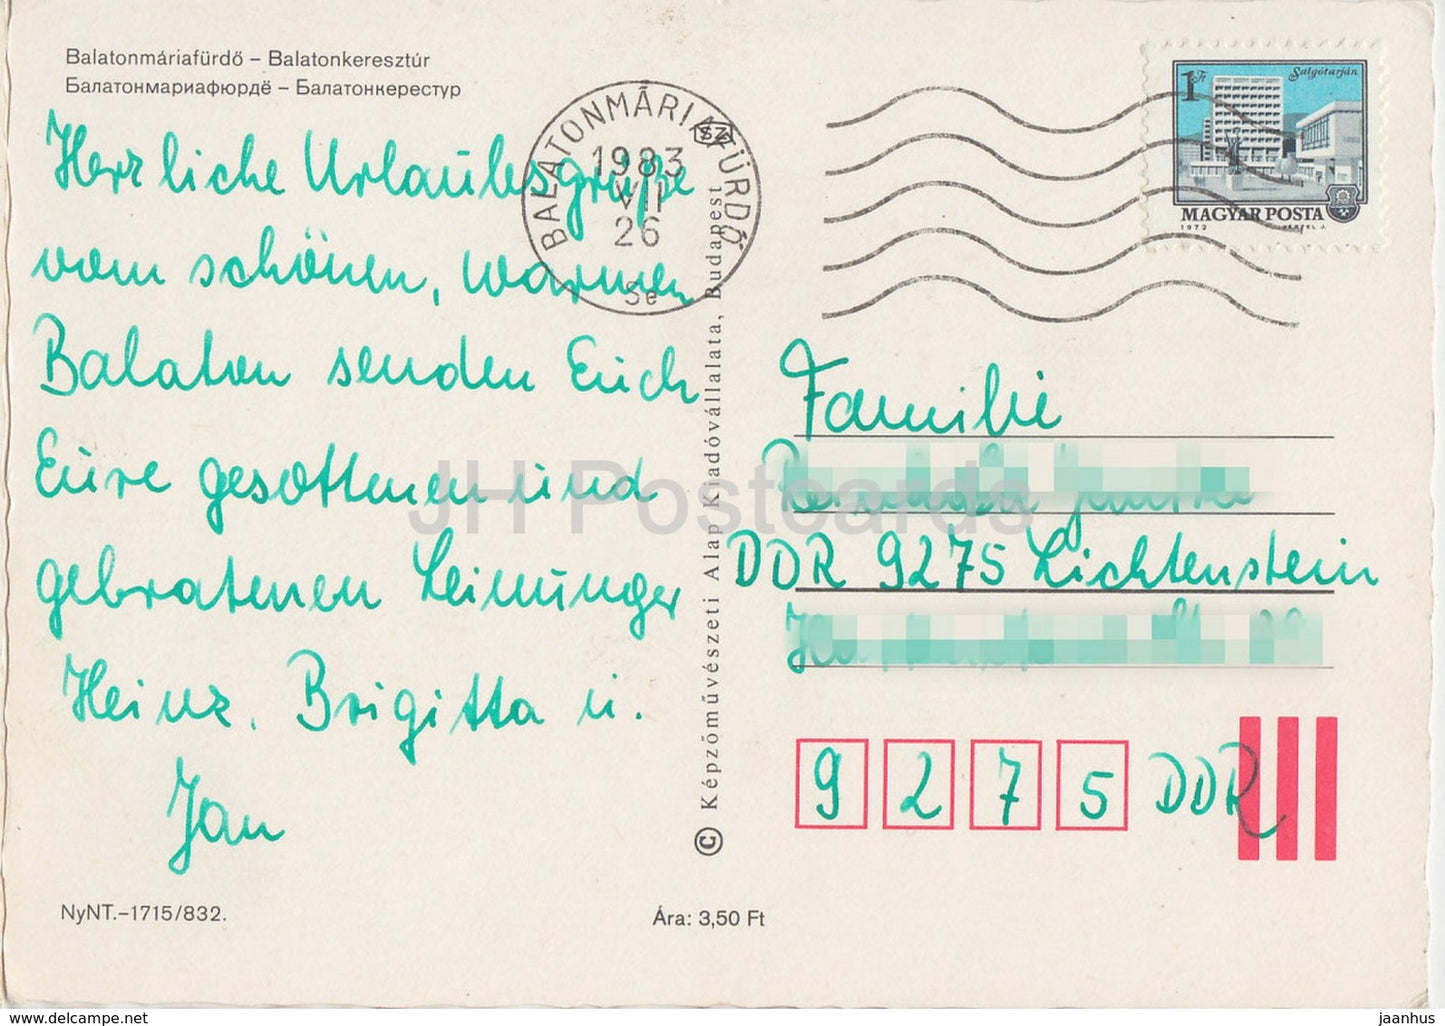 Balatonmáriafürdő – Balatonkeresztúr
Балатонмариафюрдё – Балатонкерестур
Herzliche Urlaubsgrüße
vom schönen, warmen
Balaton senden Euch
Eure gesottenen und
gebratenen Leimunger
Heinz, Brigitta u.
Jan
NyNT.–1715/832.
BALATONMÁRIAFÜRDŐ
SZ
1983
VII
26
Se
© Képzőművészeti Alap Kiadóvállalata, Budapest
Ára: 3,50 Ft
1 Ft
Salgótarján
MAGYAR POSTA
1972
VERTEL J.
Familie
DDR 9275 Lichtenstein
9 2 7 5 DDR
JH Postcards
www.delcampe.net
jaanhus